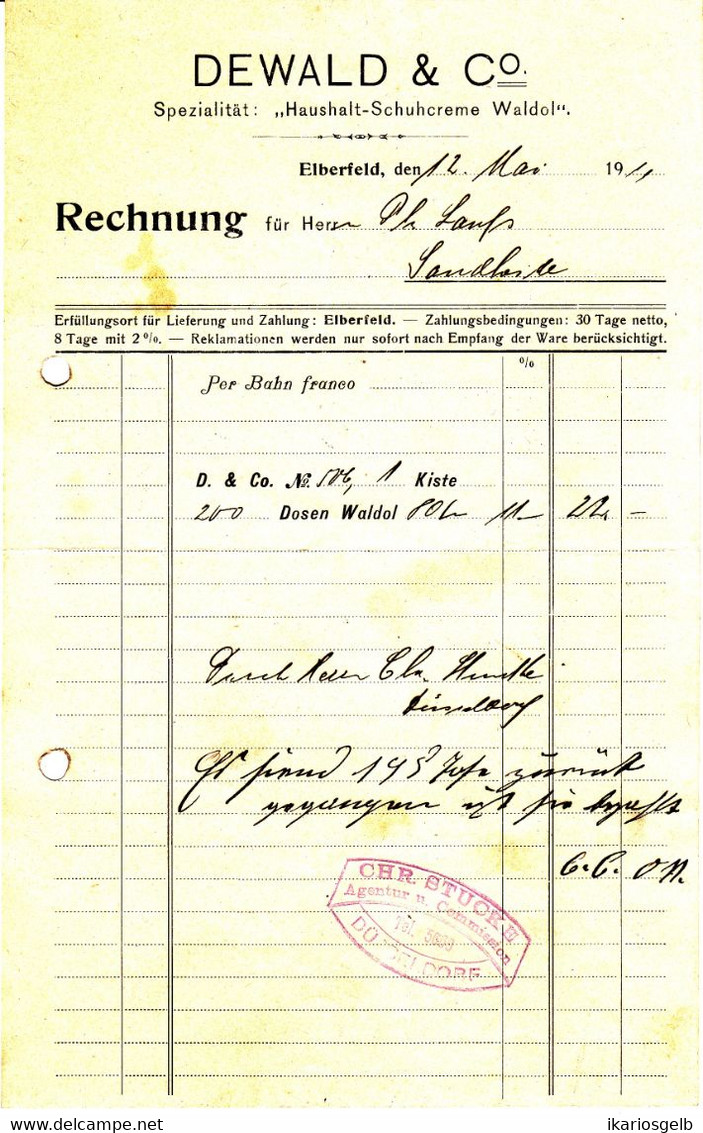 DEWALD & Co.
Spezialität: „Haushalt-Schuhcreme Waldol".
Elberfeld, den 12. Mai 1911
Rechnung für Herrn Ph
Erfüllungsort für Lieferung und Zahlung: Elberfeld. — Zahlungsbedingungen: 30 Tage netto,
8 Tage mit 2%. — Reklamationen werden nur sofort nach Empfang der Ware berücksichtigt.
%
Per Bahn franco
D. & Co. No. 506, 1 Kiste
200 Dosen Waldol 11— 22. —
Durch Herrn Chr. Stucke
Düsseldorf
Es sind 195 zurück
gegangen
CHR. STUCKE
Agentur u. Commission
Tel.
DÜSSELDORF
www.delcampe.net
ikariosgelb